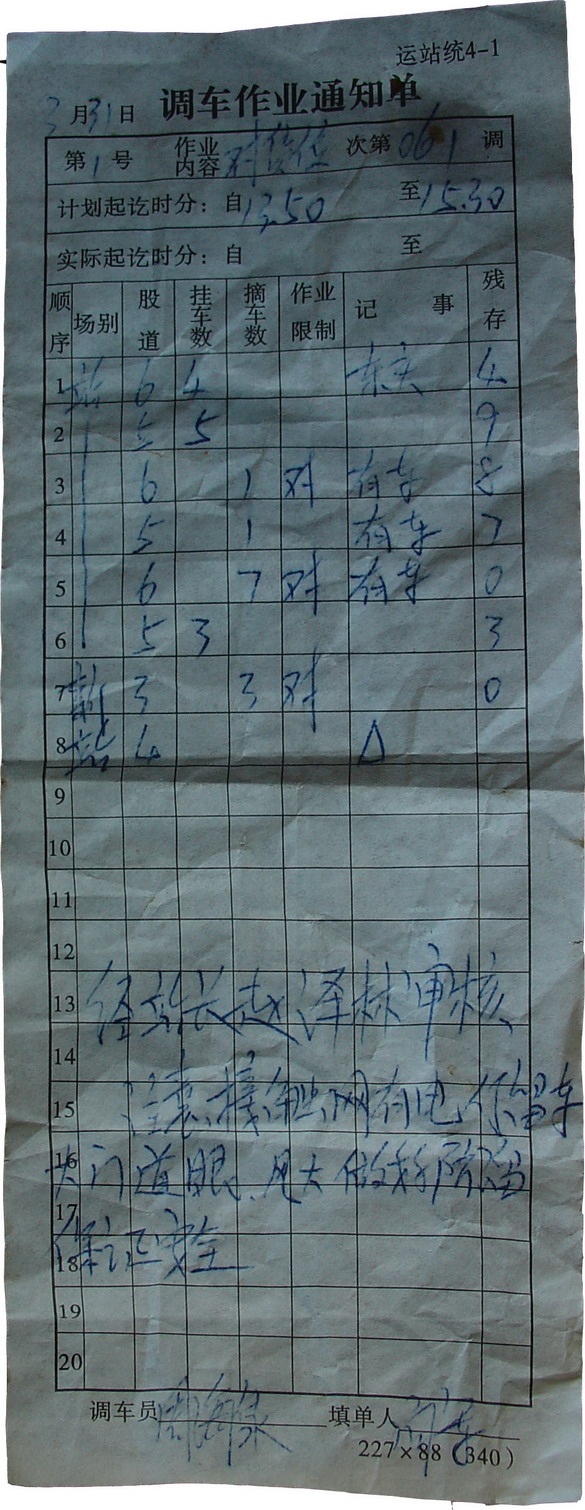 运站统4-1
3月31日 调车作业通知单
第1号 作业内容 对货位 次第061调
计划起讫时分：自13.50 至15.30
实际起讫时分：自 至
顺序 场别 股道 挂车数 摘车数 作业限制 记事 残存
1 站 6 4 东头 4
2 5 5 9
3 6 1 对 有车 8
4 5 1 有车 7
5 6 7 对 有车 0
6 5 3 3
7 新 3 3 对 0
8 站 4 △
9
10
11
12
13 经站长赵泽林审核、
14
15 注意接触网有电、停留车
16 大门道眼、
17
18 保证安全
19
20
调车员 填单人
227×88（340）